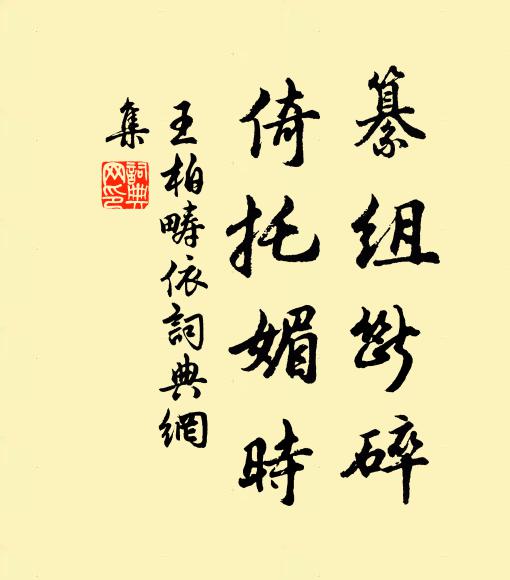 纂組斷碎
倚托媚時
王柏疇依詞典網
集
詞典網印